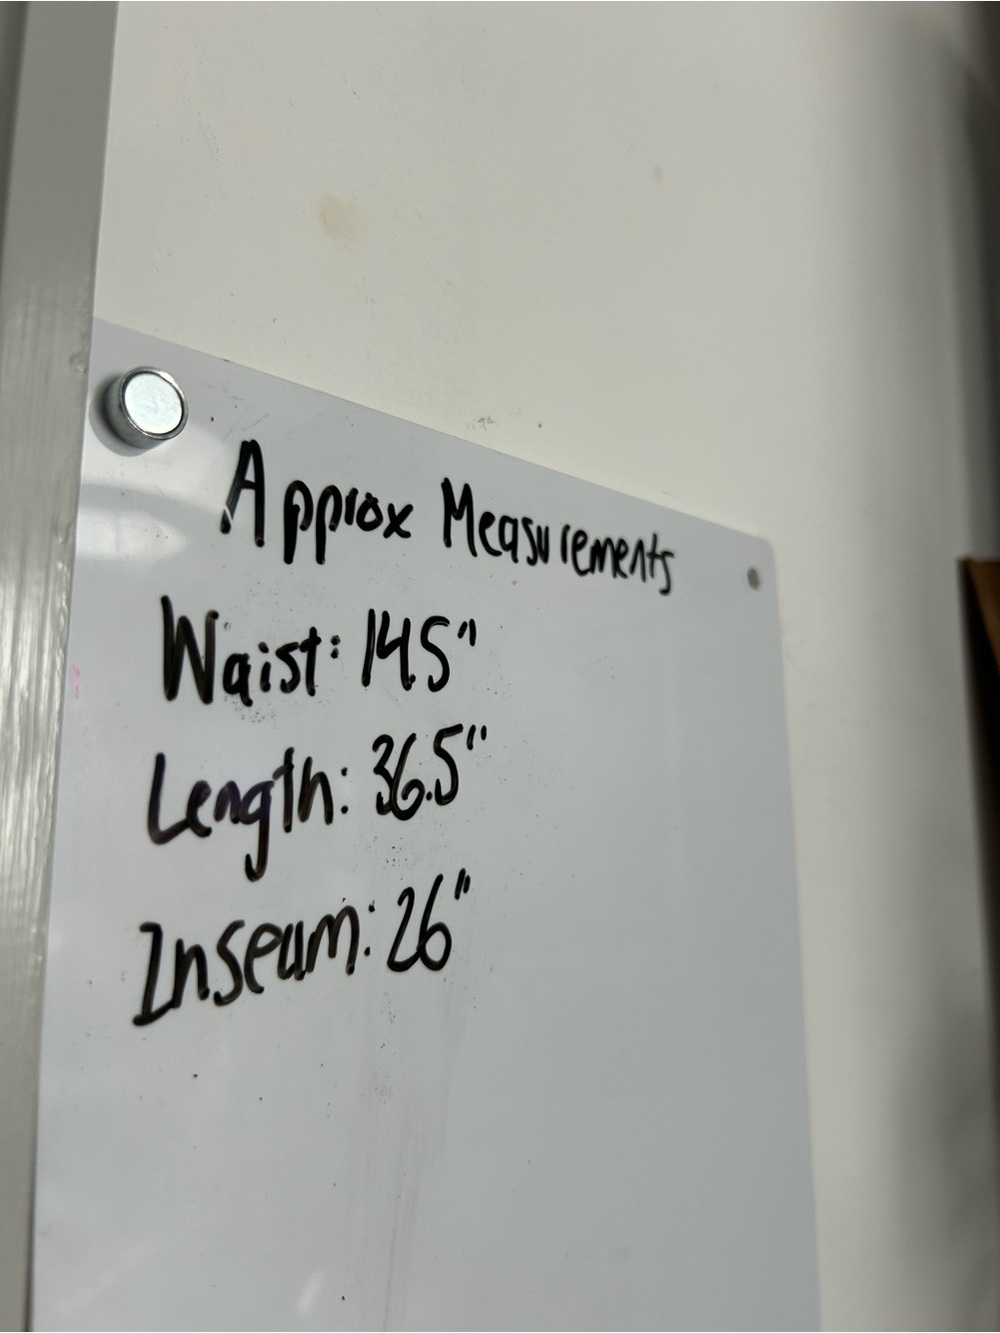 Approx Measurements
Waist: 14.5"
Length: 36.5"
Inseam: 26"